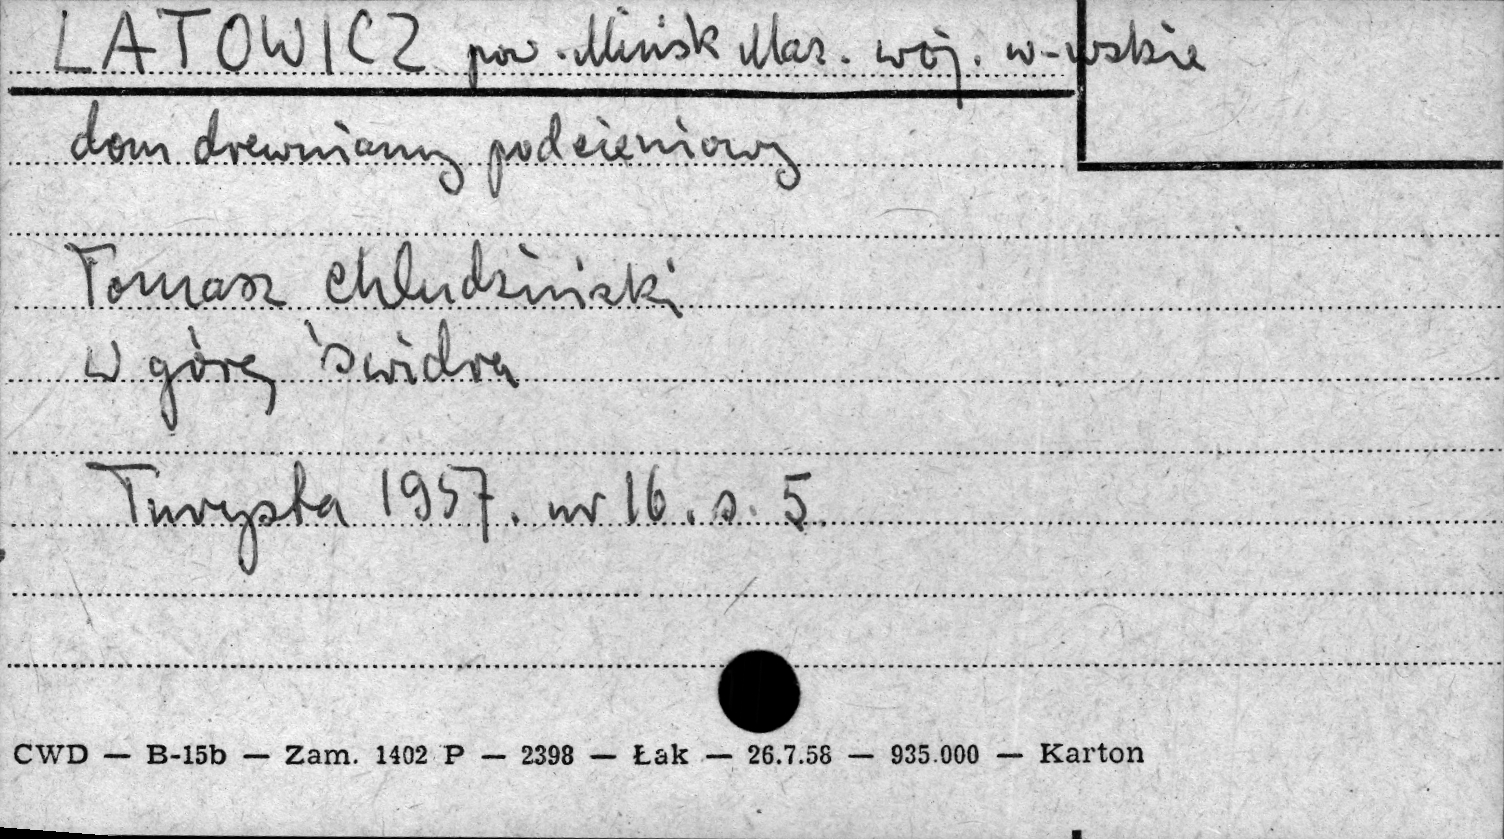 LATOWICZ pow. Mińsk Maz. woj. w-wskie
dom drewniany podcieniowy
Tomasz Chludziński
w górę Świdra
Turysta 1957. nr 16. s. 5.
CWD — B-15b — Zam. 1402 P — 2398 — Łak — 26.7.58 — 935.000 — Karton